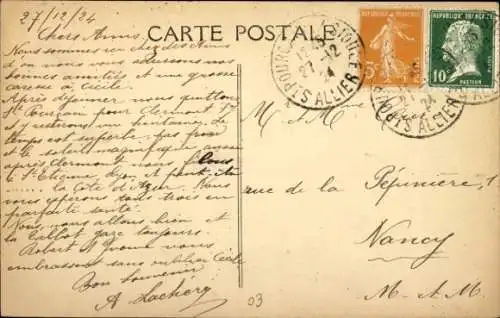 27/12/24
CARTE POSTALE
Chers Amis,
Nous sommes ici chez des Amis
d'où nous vous adressons nos
bonnes amitiés et une grosse
caresse à Cécile.
Après déjeuner nous quittons
St Pourçain pour Clermont Fd
et y resterons un bon temps. Le
temps est superbe. Pas froid
et le soleil magnifique aussi
après Clermont nous filons
St Etienne, Lyon, et peut être
la Côte d'Azur. Nous
vous espérons tous trois en
parfaite santé.
Nous, nous allons bien et
la Talbot gaze toujours.
Robert et Yvonne vous
embrassent sans oublier Cécile
Bon souvenir
A
REPUBLIQUE FRANÇAISE
5c
10c
PASTEUR
ALLIER
27-12
24
M et Mme
rue de la Pépinière,
Nancy
M. et M.
03